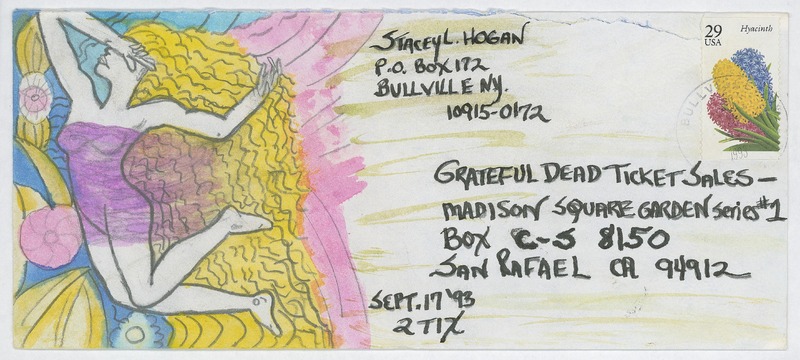 STACEY L. HOGAN
P.O. BOX 172
BULLVILLE NY.
10915-0172
29
USA
Hyacinth
BULLV
1993
GRATEFUL DEAD TICKET SALES —
MADISON SQUARE GARDEN Series #1
BOX C-S 8150
SAN RAFAEL CA 94912
SEPT. 17 '93
2 TIX